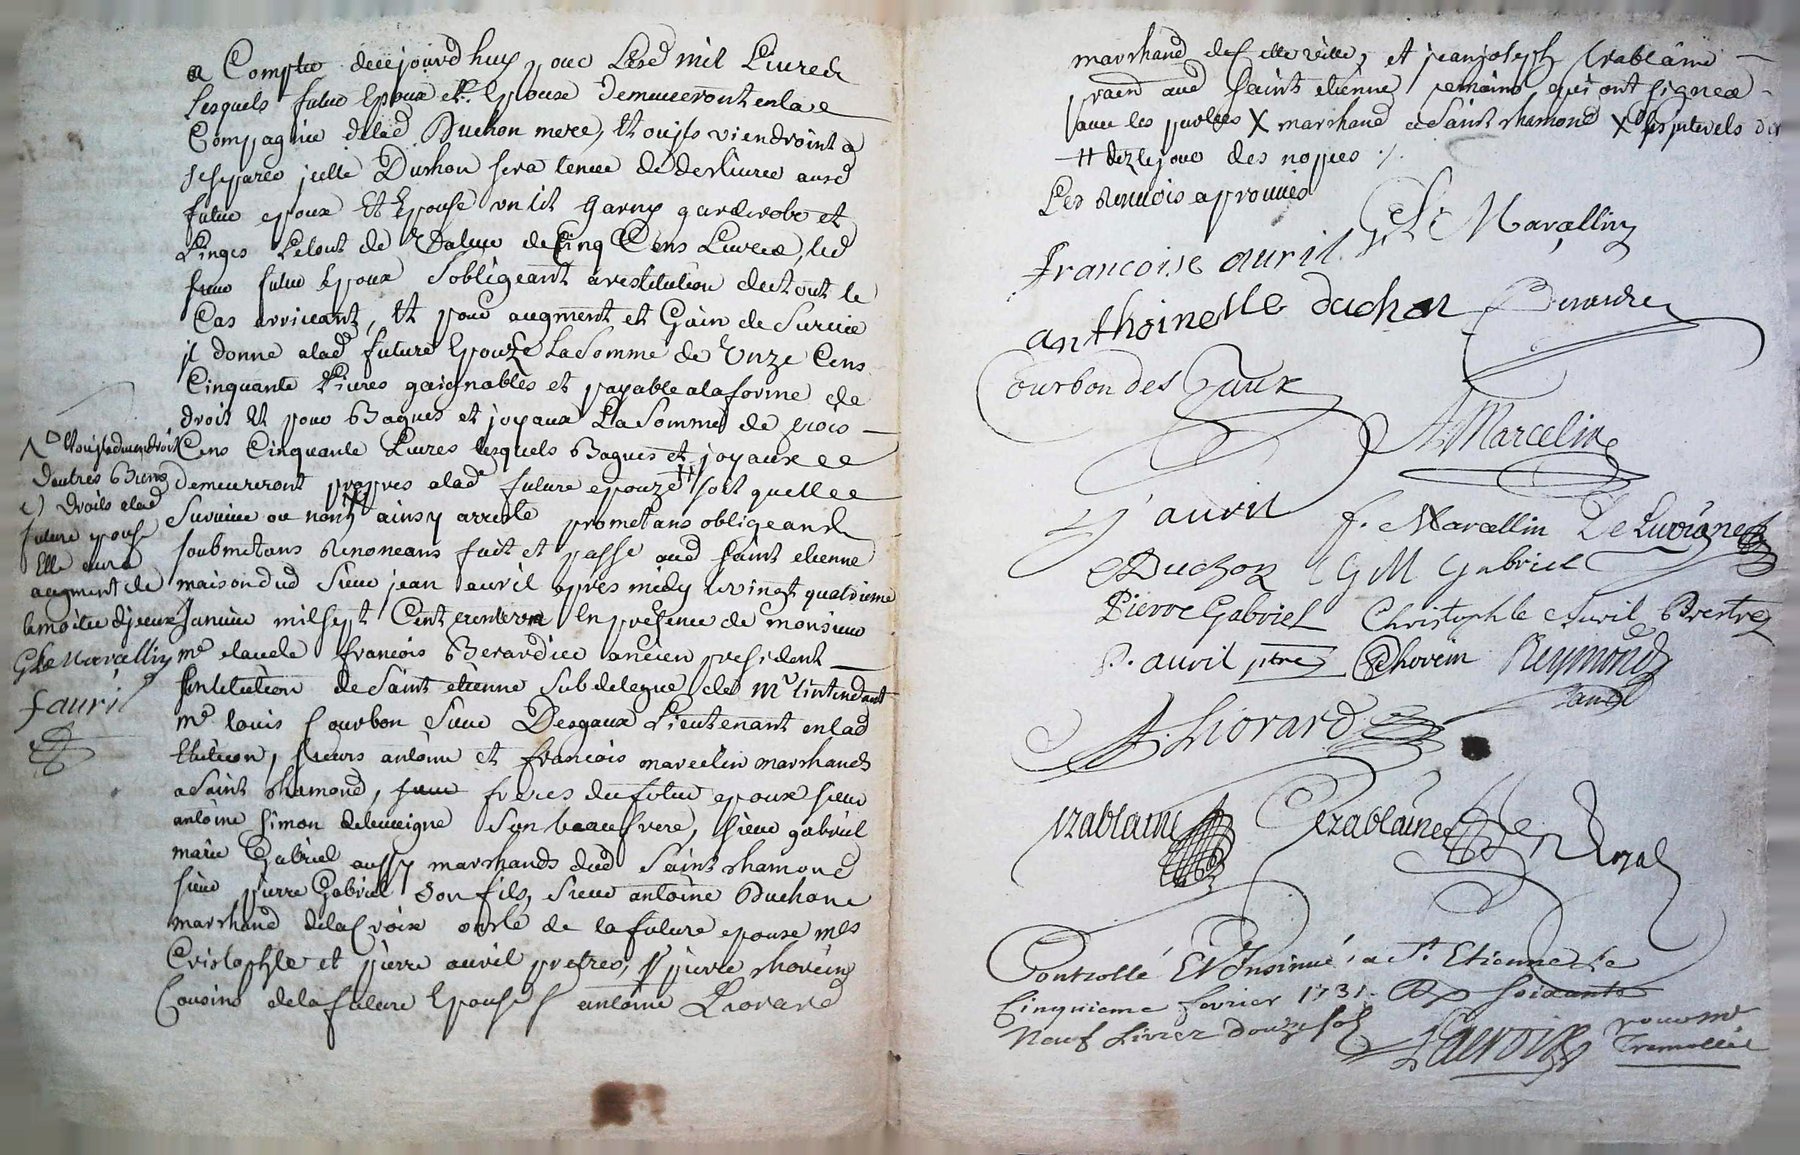 a Compter decejourdhuy, avec Lesd mil Livres
Lesquels futur Epoux et Epouse demeureront enla
Compagnie delad Duchon mere, Et ou jls viendroint a
seseparer jcelle Duchon sera tenue de deslivrer ausd
futur epoux Et Epouse un lit garny garderobe et
Linges Letout de Valeur de Cinq Cens Livres, led
sieur futur Epoux sobligeant a restitution du tout le
Cas arrivant, Et pour augment et Gain de Survie
jl donne alad future Epouze La Somme de Unze Cens
Cinquante Livres gaignables et payable ala forme de
droit Et pour Bagues et joyaux La Somme de trois
Cens Cinquante Livres lesquels Bagues et joyaux
demeureront propres alad future epouze # soit quelle
Survive ou non X ainsy arresté prometans obligeans
soubmetans Renonceans fait et passé aud Saint etienne
maison dud Sieur jean avril apres midy le vingt quatrieme
Janvier mil sept Cent trente un En presence de monsieur
me claude françois Berardier ancien president
Enlelection de Saint etienne Subdelegué de Mr lintendant
me louis Courbon Sieur Desgaux Lieutenant enlad
Election, sieurs antoine et françois marcellin marchands
a Saint Chamond, freres du futur epoux sieur
antoine Simon deluvigne Son beaufrere, sieur gabriel
marie Gabriel aussy marchands dud Saint Chamond
sieur pierre Gabriel Son fils, Sieur antoine Duchon
marchand delaCroix oncle de la future epouse mes
Cristophle et pierre avril pretres, Sr pierre chovein
Cousins dela future Epouse antoine Liorard
d'autres Biens
droits alad
future epouse
Elle aura
augment de
la moitié diceux
G Le Marcellin
f avril
marchand de cette ville, et jean joseph Crablaine
praen aud Saint etienne temoins qui ont signes
avec les parties X marchand a Saint Chamond X
# dez le jour des nopces ./.
Les Renvois aprouvés
Marcellin
francoise avril
anthoinette duchon Berardier
Courbon des Gaux
A Marcelin
J avril f. Marcellin DeLuvigne
A Duchon G M Gabriel
Pierre Gabriel Christophle Avril Prestre
P. avril ptre Chovein Reymond
A. Liorard
Crablaine Crablaine
Controllé Et Insinué a St. Etienne le
Cinquieme fevrier 1731. Soixante
Neuf Livres douze sols
pour Mr